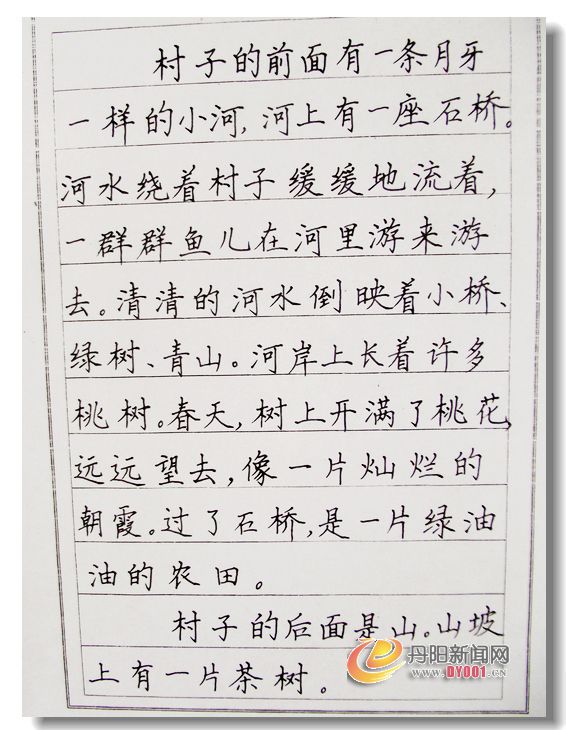 村子的前面有一条月牙
一样的小河，河上有一座石桥。
河水绕着村子缓缓地流着，
一群群鱼儿在河里游来游
去。清清的河水倒映着小桥、
绿树、青山。河岸上长着许多
桃树。春天，树上开满了桃花，
远远望去，像一片灿烂的
朝霞。过了石桥，是一片绿油
油的农田。
村子的后面是山。山坡
上有一片茶树。
丹阳新闻网
www.DY001.CN